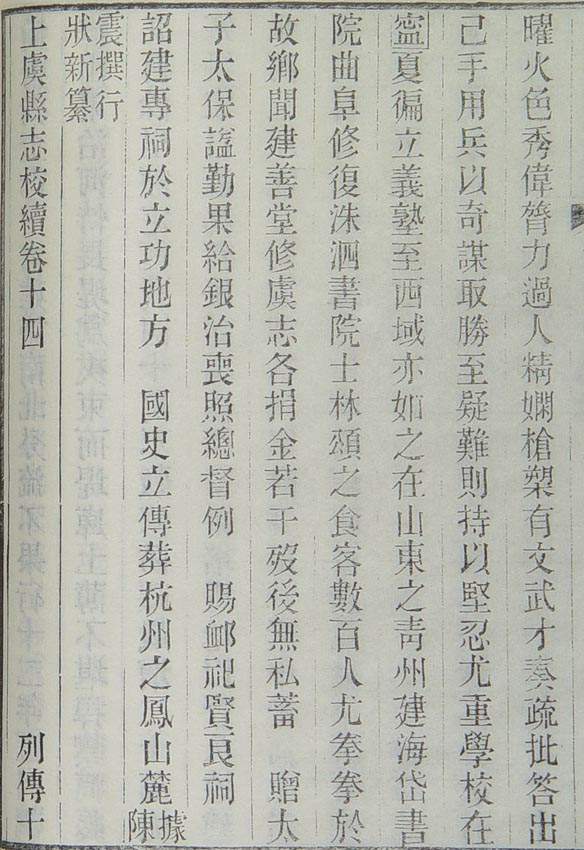 曜火色秀偉膂力過人精嫻槍槊有文武才奏疏批答出
己手用兵以奇謀取勝至疑難則持以堅忍尤重學校在
寍夏徧立義塾至西域亦如之在山東之靑州建海岱書
院曲阜修復洙泗書院士林頌之食客數百人尤拳拳於
故鄉聞建善堂修虞志各捐金若干歿後無私蓄　贈太
子太保諡勤果給銀治喪照總督例　賜卹祀賢良祠
詔建專祠於立功地方　國史立傳葬杭州之鳳山麓據陳
震撰行
狀新纂
上虞縣志校續卷十四　列傳十